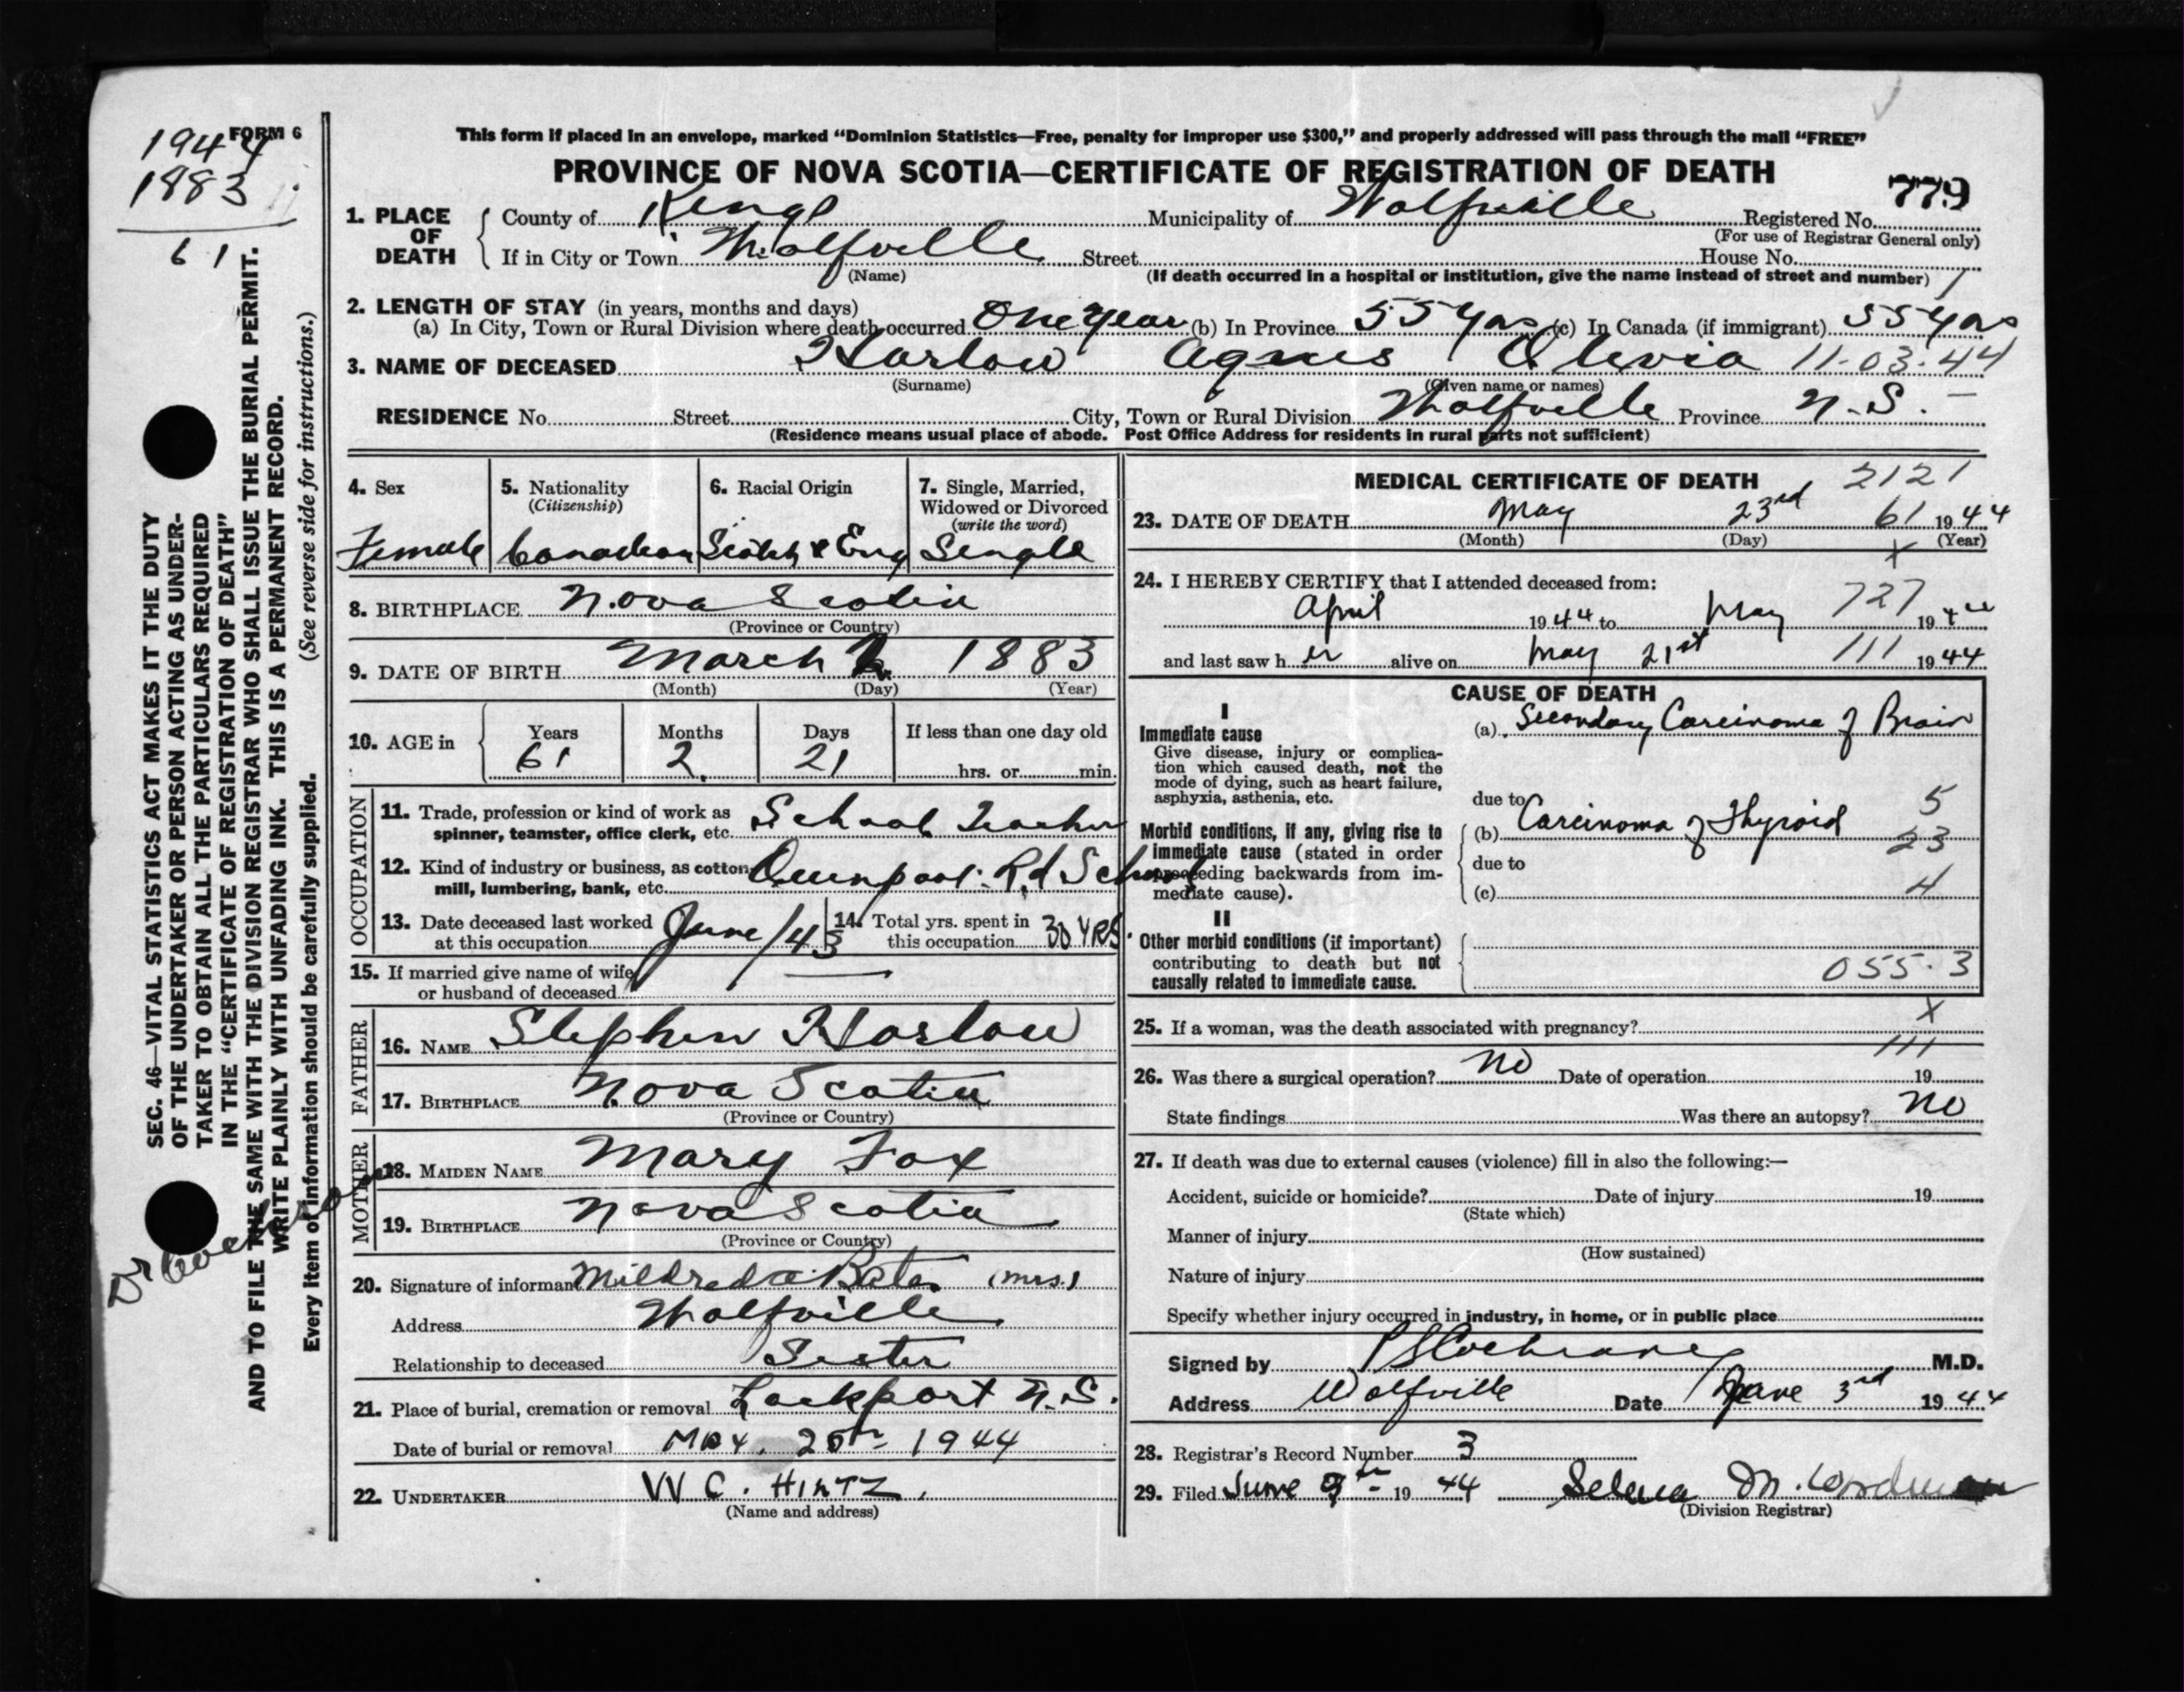 1944 FORM 6
1883
61
This form if placed in an envelope, marked “Dominion Statistics—Free, penalty for improper use $300,” and properly addressed will pass through the mail “FREE”
PROVINCE OF NOVA SCOTIA—CERTIFICATE OF REGISTRATION OF DEATH
779
1. PLACE OF DEATH County of Kings Municipality of Wolfville Registered No.
(For use of Registrar General only)
If in City or Town Wolfville Street House No.
(Name) (If death occurred in a hospital or institution, give the name instead of street and number) 1
2. LENGTH OF STAY (in years, months and days)
(a) In City, Town or Rural Division where death occurred One year (b) In Province 55 yrs (c) In Canada (if immigrant) 55 yrs
3. NAME OF DECEASED Harlow Agnes Olevia 11-03-44
(Surname) (Given name or names)
RESIDENCE No. Street City, Town or Rural Division Wolfville Province N.S.
(Residence means usual place of abode. Post Office Address for residents in rural parts not sufficient)
4. Sex
Female
5. Nationality
(Citizenship)
Canadian
6. Racial Origin
Scotch & Eng
7. Single, Married,
Widowed or Divorced
(write the word)
Single
8. BIRTHPLACE Nova Scotia
(Province or Country)
9. DATE OF BIRTH March 2 1883
(Month) (Day) (Year)
10. AGE in Years Months Days If less than one day old
61 2 21 hrs. or min.
OCCUPATION
11. Trade, profession or kind of work as
spinner, teamster, office clerk, etc. School Teacher
12. Kind of industry or business, as cotton
mill, lumbering, bank, etc. Quinpool Rd School
13. Date deceased last worked
at this occupation June/43
14. Total yrs. spent in
this occupation 30 YRS.
15. If married give name of wife
or husband of deceased —
FATHER
16. NAME Stephen Harlow
17. BIRTHPLACE Nova Scotia
(Province or Country)
MOTHER
18. MAIDEN NAME Mary Fox
19. BIRTHPLACE Nova Scotia
(Province or Country)
20. Signature of informant Mildred a. Bates (mrs.)
Address Wolfville
Relationship to deceased Sister
21. Place of burial, cremation or removal Lockport N.S.
Date of burial or removal MAY. 25th 1944
22. UNDERTAKER W C. HIRTZ.
(Name and address)
MEDICAL CERTIFICATE OF DEATH 2121
23. DATE OF DEATH May 23rd 61 1944
(Month) (Day) (Year)
x
24. I HEREBY CERTIFY that I attended deceased from: 727
April 1944 to May 1944
and last saw her alive on May 21st 111 1944
CAUSE OF DEATH
I
Immediate cause
Give disease, injury or complica-
tion which caused death, not the
mode of dying, such as heart failure,
asphyxia, asthenia, etc.
(a) Secondary Carcinoma of Brain
due to 5
Morbid conditions, if any, giving rise to
immediate cause (stated in order
proceeding backwards from im-
mediate cause).
(b) Carcinoma of Thyroid 23
due to
(c) 4
II
Other morbid conditions (if important)
contributing to death but not
causally related to immediate cause.
055.3
x
25. If a woman, was the death associated with pregnancy?
111
26. Was there a surgical operation? No Date of operation 19
State findings Was there an autopsy? No
27. If death was due to external causes (violence) fill in also the following:—
Accident, suicide or homicide? Date of injury 19
(State which)
Manner of injury
(How sustained)
Nature of injury
Specify whether injury occurred in industry, in home, or in public place
Signed by P S Cochrane M.D.
Address Wolfville Date June 3rd 1944
28. Registrar's Record Number 3
29. Filed June 1944 M.
(Division Registrar)
SEC. 46—VITAL STATISTICS ACT MAKES IT THE DUTY
OF THE UNDERTAKER OR PERSON ACTING AS UNDER-
TAKER TO OBTAIN ALL THE PARTICULARS REQUIRED
IN THE “CERTIFICATE OF REGISTRATION OF DEATH”
AND TO FILE THE SAME WITH THE DIVISION REGISTRAR WHO SHALL ISSUE THE BURIAL PERMIT.
WRITE PLAINLY WITH UNFADING INK. THIS IS A PERMANENT RECORD.
Every item of information should be carefully supplied. (See reverse side for instructions.)
Dr Cochrane